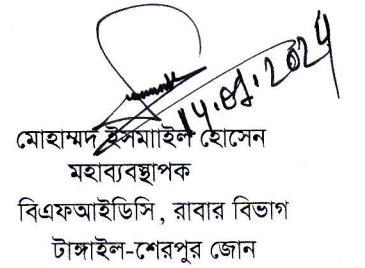 মোহাম্মদ ইসমাইল হোসেন
মহাব্যবস্থাপক
বিএফআইডিসি, রাবার বিভাগ
টাঙ্গাইল-শেরপুর জোন